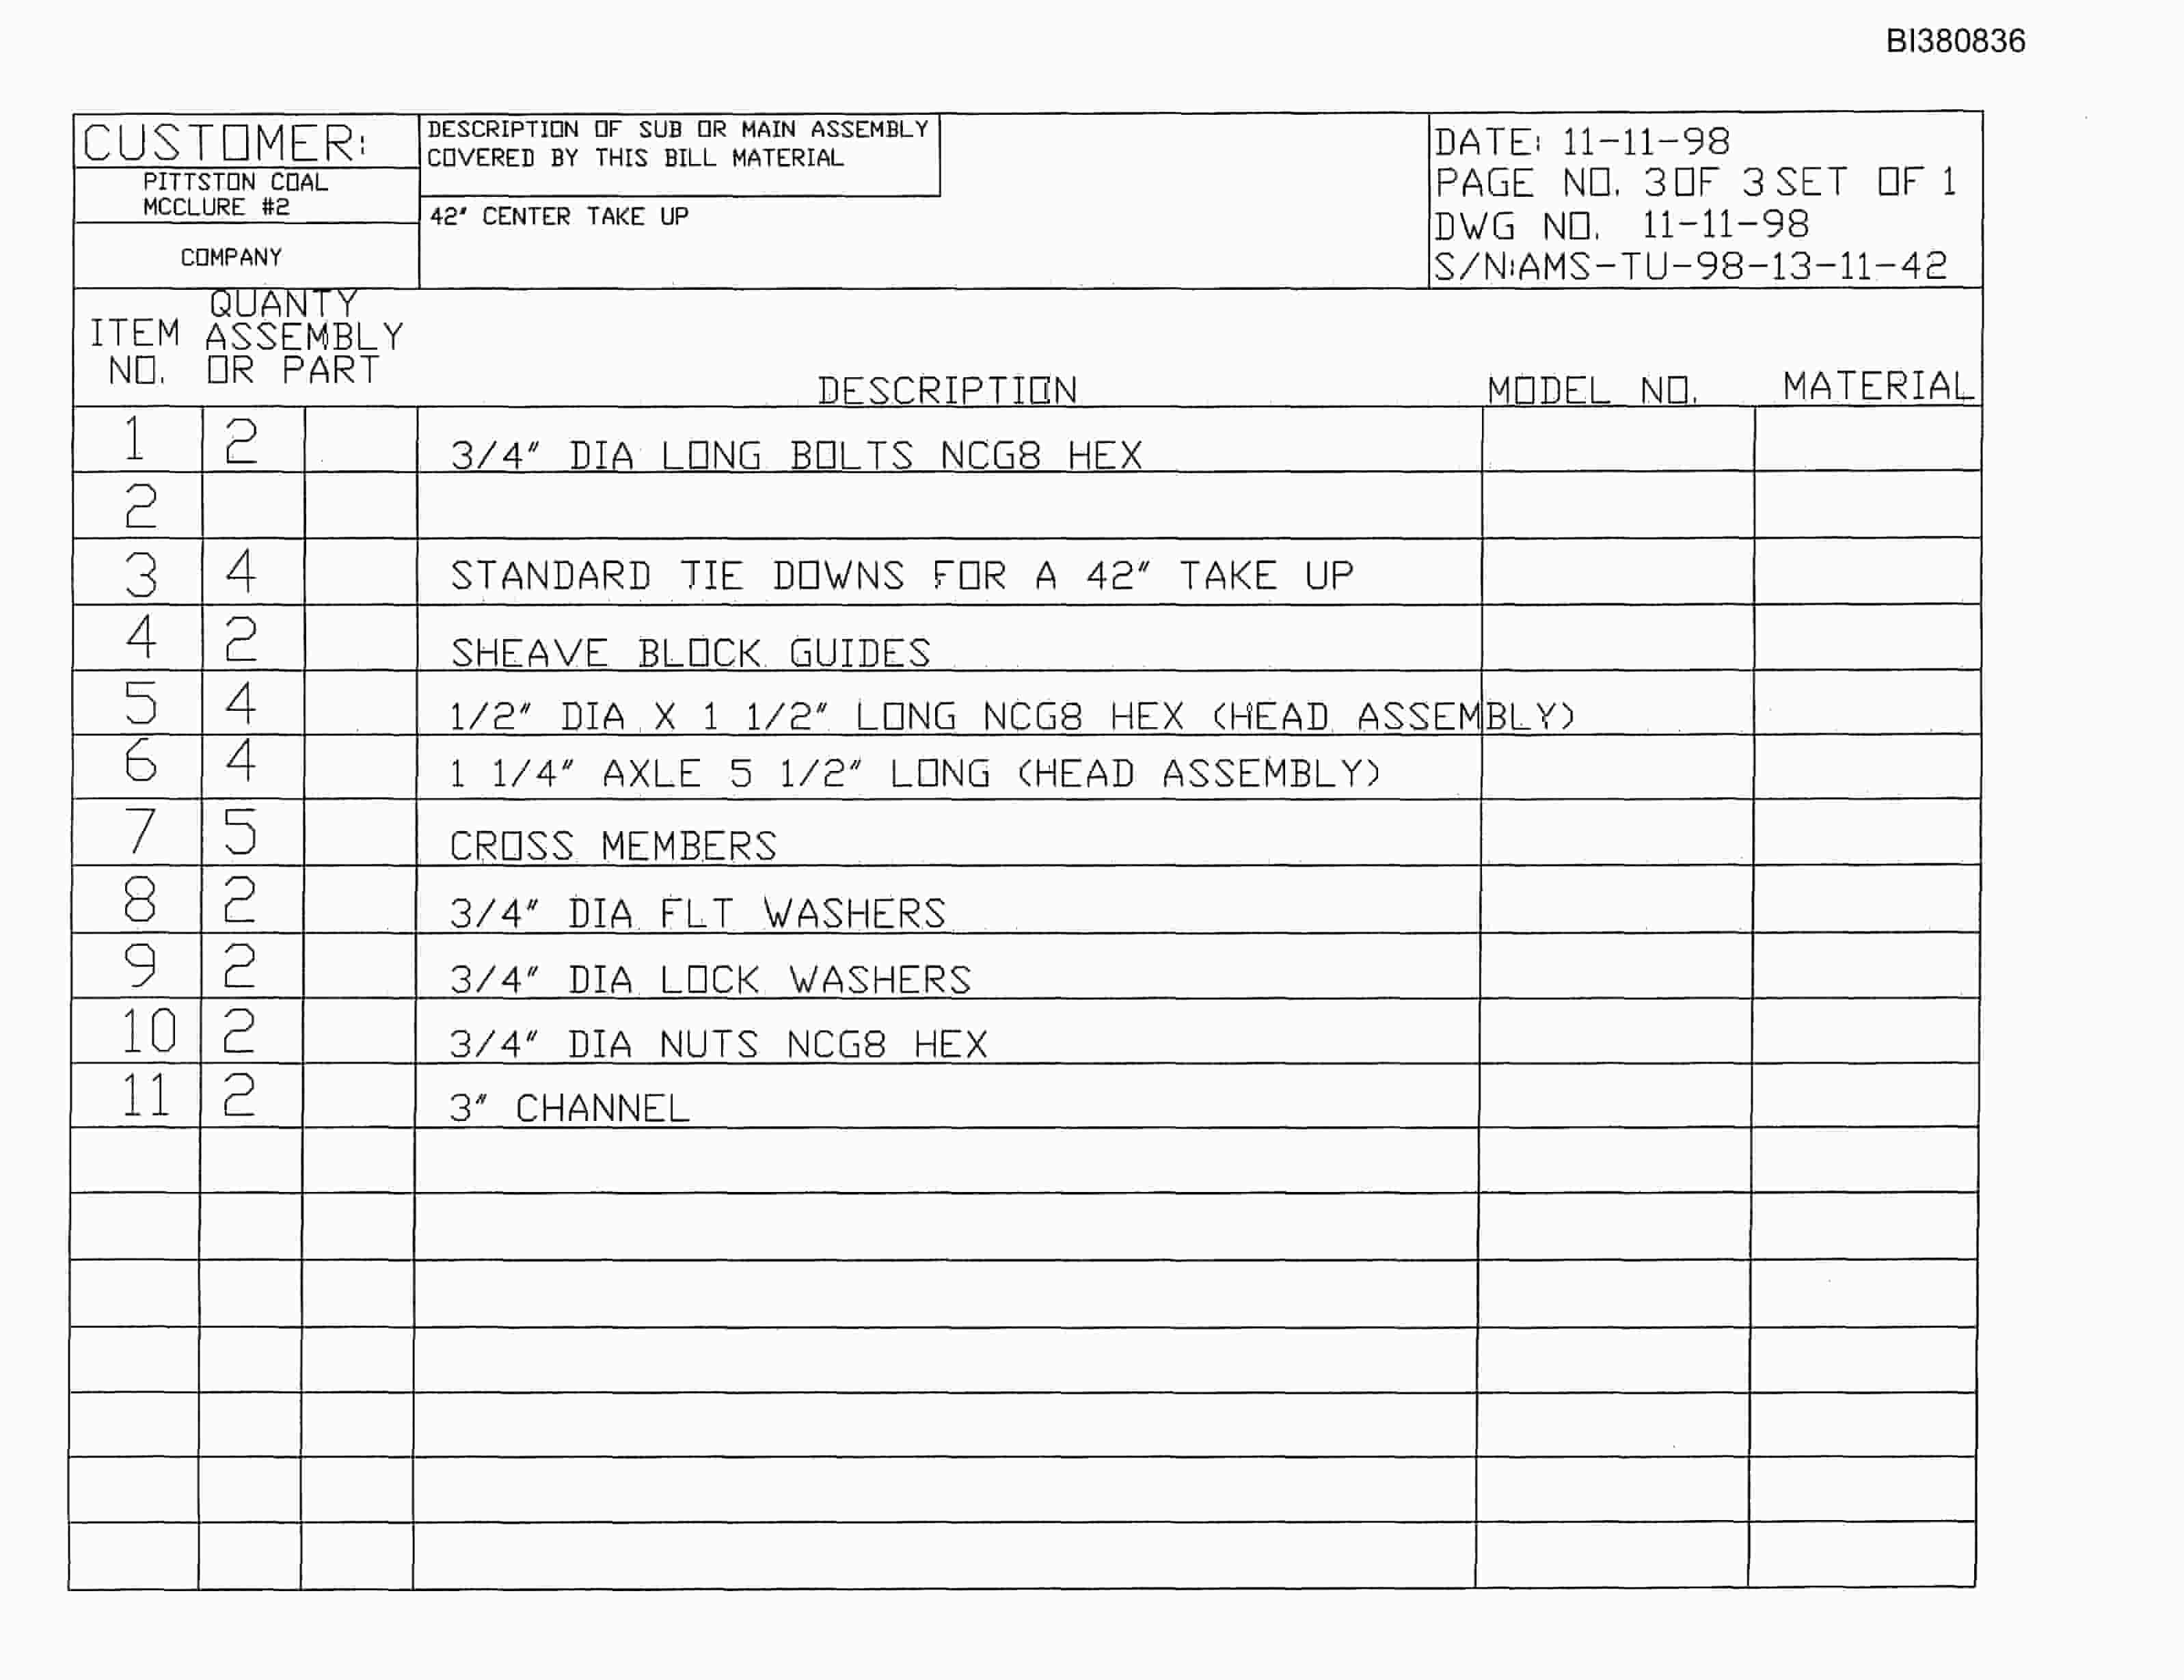 BI380836
CUSTOMER:
PITTSTON COAL
MCCLURE #2
COMPANY
DESCRIPTION OF SUB OR MAIN ASSEMBLY
COVERED BY THIS BILL MATERIAL
42" CENTER TAKE UP
DATE: 11-11-98
PAGE NO. 3 OF 3 SET OF 1
DWG NO. 11-11-98
S/N:AMS-TU-98-13-11-42
ITEM NO. QUANTY ASSEMBLY OR PART DESCRIPTION MODEL NO. MATERIAL
1 2 3/4" DIA LONG BOLTS NCG8 HEX
2
3 4 STANDARD TIE DOWNS FOR A 42" TAKE UP
4 2 SHEAVE BLOCK GUIDES
5 4 1/2" DIA X 1 1/2" LONG NCG8 HEX (HEAD ASSEMBLY)
6 4 1 1/4" AXLE 5 1/2" LONG (HEAD ASSEMBLY)
7 5 CROSS MEMBERS
8 2 3/4" DIA FLT WASHERS
9 2 3/4" DIA LOCK WASHERS
10 2 3/4" DIA NUTS NCG8 HEX
11 2 3" CHANNEL